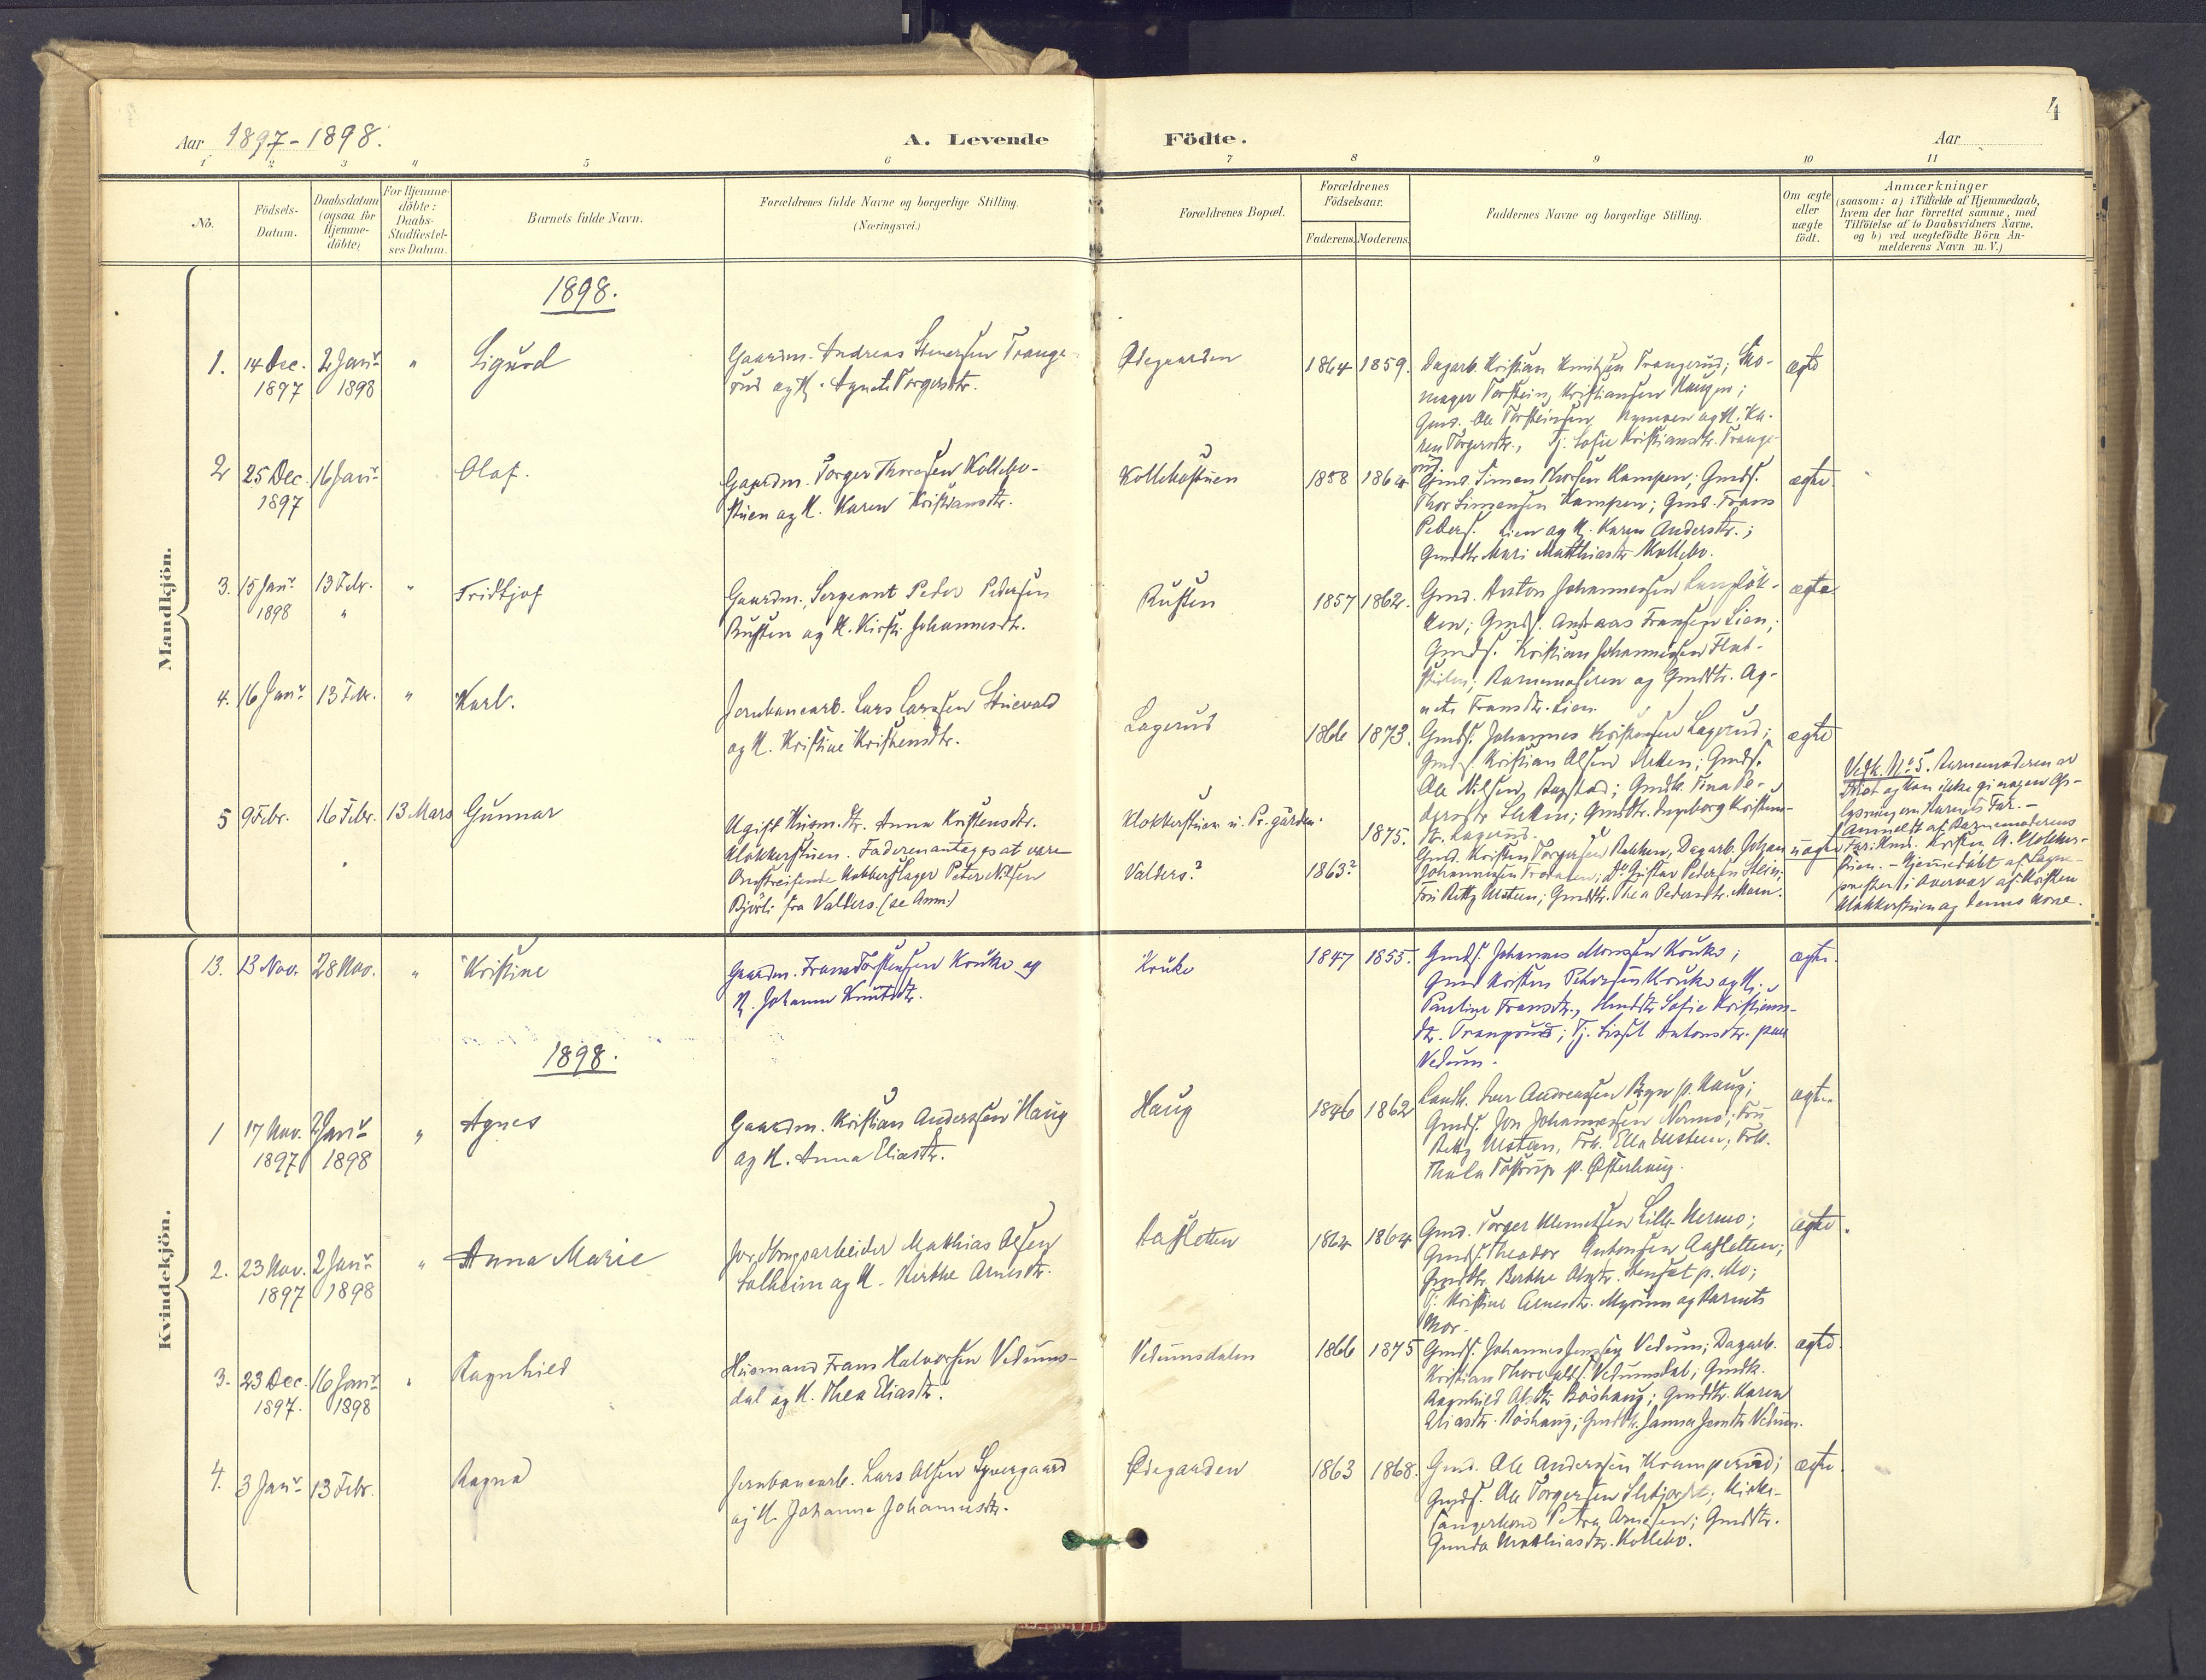 4
Aar 1897-1898.
A. Levende Födte.
Aar
1 2 3 4 5 6 7 8 9 10 11
No.
Födsels-
Datum.
Daabsdatum
(ogsaa for
Hjemme-
döbte)
For Hjemme-
döbte:
Daabs-
Stadfæstel-
ses Datum.
Barnets fulde Navn.
Forældrenes fulde Navne og borgerlige Stilling.
(Næringsvei.)
Forældrenes Bopæl.
Forældrenes
Födselsaar.
Faderens. Moderens.
Faddernes Navne og borgerlige Stilling.
Om ægte
eller
uægte
födt.
Anmærkninger
(saasom: a) i Tilfælde af Hjemmedaab,
hvem der har forrettet samme, med
Tilföielse af to Daabsvidners Navne,
og b) ved uægtefödte Börn An-
melderens Navn m. V.)
Mandkjön.
1898.
1. 14 Dec. 1897
2 Janr 1898
"
Sigurd
Gaardm. Andreas
og K. Agnete Torgersdtr.
Ødegaarden
1864 1859.
Dagarb. Kristian Knutsen Trangerud; Sko-
mager Torstein Kristiansen Haugen;
Gmd. Ole Torsteinsen og K. Ka-
ren Torgersdtr., Tj. Sofie Kristiansdtr. Trange-
rud
ægte
2 25 Dec. 1897
16 Janr
Olaf.
Gaardm. Torger Thoresen Kollebo-
stuen og K. Karen Kristiansdtr.
Kollebostuen
1858 1864
Gmd. Simen Thorsen Kampen; Gmds.
Thor Simensen Kampen; Gmd. Frans
Peders. Lien og K. Karen Andersdtr.;
Gmddtr. Mari Matthiasdtr. Kollebo.
ægte
3. 15 Janr 1898
13 Febr. "
"
Fridtjof
Gaardm., Sergeant Peder Pedersen
Rusten og K. Kirsti Johannesdtr.
Rusten
1857 1862.
Gmd. Anton Johannessen
ken; Gmds. Andreas Fransen Lien;
Gmds. Kristian Johannessen
Barnemoderen og Gmddtr. Ag-
nete Fransdtr. Lien.
ægte
4. 16 Janr
13 Febr.
"
Karl.
Jernbanearb. Lars Larssen Stuevold
og K. Kristine Kristensdtr.
Lagerud
1866 1873.
Gmds. Johannes Kristensen Lagerud;
Gmds. Kristian Olsen Sletten; Gmds.
Ole Nilsen Ragstad; Gmddtr. Tina Pe-
dersdtr. Sletten; Gmddtr. Ingeborg Kristens-
dtr. Lagerud.
ægte
5 9 Febr.
16 Febr.
13 Mars
Gunnar
Ugift Husm. dtr. Anna Kristensdtr.
Klokkerstuen. Faderen antages at være
Omstreifende Kobberslager Peter Nilsen
Bjørli fra Valders. (se Anm.)
Klokkerstuen u. Pr. gården.
Valders?
1863? 1875.
Gmd. Kristen Torgersen Bakken, Dagarb. Johan
Johannessen; Do. Gustav Pedersen Stein;
Fru Betty Ursteen; Gmddtr. Thea Pedersdtr. Moen.
uægte
Vedk. No 5. Barnemoderen er
Idiot og kan ikke gi nogen Op-
lysning om Barnets Far. –
Anmeldt af Barnemoderens
Far: Hmd. Kristen A. Klokker-
stuen. – Hjemmedøbt af Sogne-
presten i Overvær af Kristen
Klokkerstuen og dennes Kone.
Kvindekjön.
13. 13 Nov.
28 Nov.
"
Kristine
Gaardm. Frans Torstensen Kruke og
K. Johanne Knutsdtr.
Kruke
1847 1855.
Gmds. Johannes Monssen Kruke;
Gmd Kristen Petersen Kruke og K.
Pauline Fransdtr., Sofie Kristians-
dtr. Trangrud; Tj. Sissel Antonsdtr. paa
Vedum.
ægte
1898.
1 17 Nov. 1897
2 Janr 1898
"
Agnes
Gaardm. Kristian Anderssen Haug
og K. Anna Eliasdtr.
Haug
1846 1862
Landh. Iver Andreassen Bryn p. Haug;
Gmds. Jon Johannessen Nermo; Fru
Betty Ursteen, Frk. Ella Ursteen; Frk.
Thula Tostrup p. Østerhaug.
ægte
2. 23 Nov. 1897
2 Janr 1898
"
Anna Marie
Matthias Olsen
Solheim og K. Berthe Arnesdtr.
Aasletten
1862 1864
Gmd. Torger Klemetsen Lille-Nermo;
Gmds. Theodor Antonsen Aasletten;
Gmddtr. Berthe p. Mo;
Tj. Kristine Arnesdtr. og Barnets
Mor.
ægte.
3. 23 Dec. 1897.
16 Janr 1898
"
Ragnhild
Husmand Frans Halvorsen Vedums-
dal og K. Thea Eliasdtr.
Vedumsdalen
1866 1875
Gmds. Johannes Jenssen Vedum; Dagarb.
Kristian Thorvalds. Vedumsdal; Gmddtr.
Ragnhild Olsdtr. Røshaug; Gmddtr. Karen
Eliasdtr. Røshaug; Gmddtr. Janna Jensdtr. Vedum.
ægte
4. 3 Janr
13 Febr.
Ragna
Jernbanearb. Lars Olsen Syvergaard
og K. Johanne Johannesdtr.
Ødegaarden
1863 1868.
Gmd. Ole Anderssen Kramperud;
Gmds. Ole Torgersen; Kirke-
sangerkone Petra Arnesen; Gmddtr.
Gunda Matthiasdtr. Kollebo.
ægte